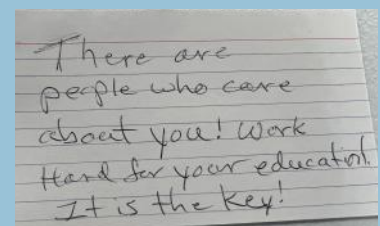 There are
people who care
about you! Work
Hard for your education.
It is the key!